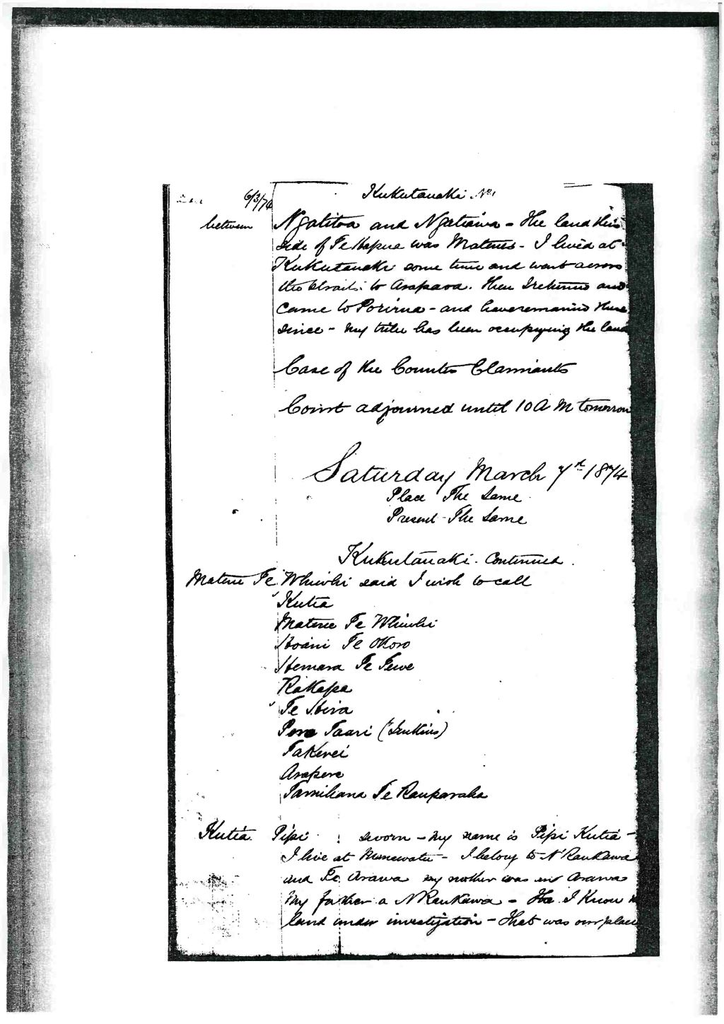 6/3/74 Kukutauaki No 1
between Ngatitoa and Ngatiawa - The land this
side of Te Hapua was Matene's - I lived at
Kukutauaki some time and went across
the straits to Arapawa. Then I returned and
came to Porirua - and have remained there
since - my tribe has been occupying the land
Case of the Counter Claimants
Court adjourned until 10 A M tomorrow
Saturday March 7th 1874
Place The Same
Present The Same
Kukutauaki. Continued.
Matene Te Whiwhi said I wish to call
Kutia
Matene Te Whiwhi
Hoani Te Okoro
Hemara Te Tewe
Rakapa
Te Hira
Pero Taari (Jenkins)
Takerei
Arapere
Tamihana Te Rauparaha
Kutia Pipi : sworn - my name is Pipi Kutia -
I live at Manawatu - I belong to N'Raukawa
and Te Arawa my mother was an Arawa
my father a N'Raukawa - I know
land under investigation - That was our place